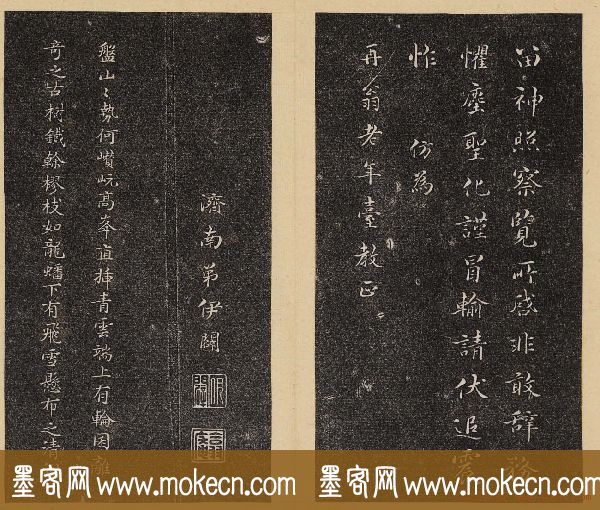 留神照察覽所感非敢辭務
懼塵聖化謹冒輪請伏追震
怍 仿為
再翁老年臺教正
濟南弟伊闢
盤山之勢何巑岏髙峯直揷青雲端上有輪囷離
奇之古樹鐵榦樛枝如龍蟠下有飛雪懸布之清
墨客网 www.mokecn.com 墨客网 www.mokecn.com